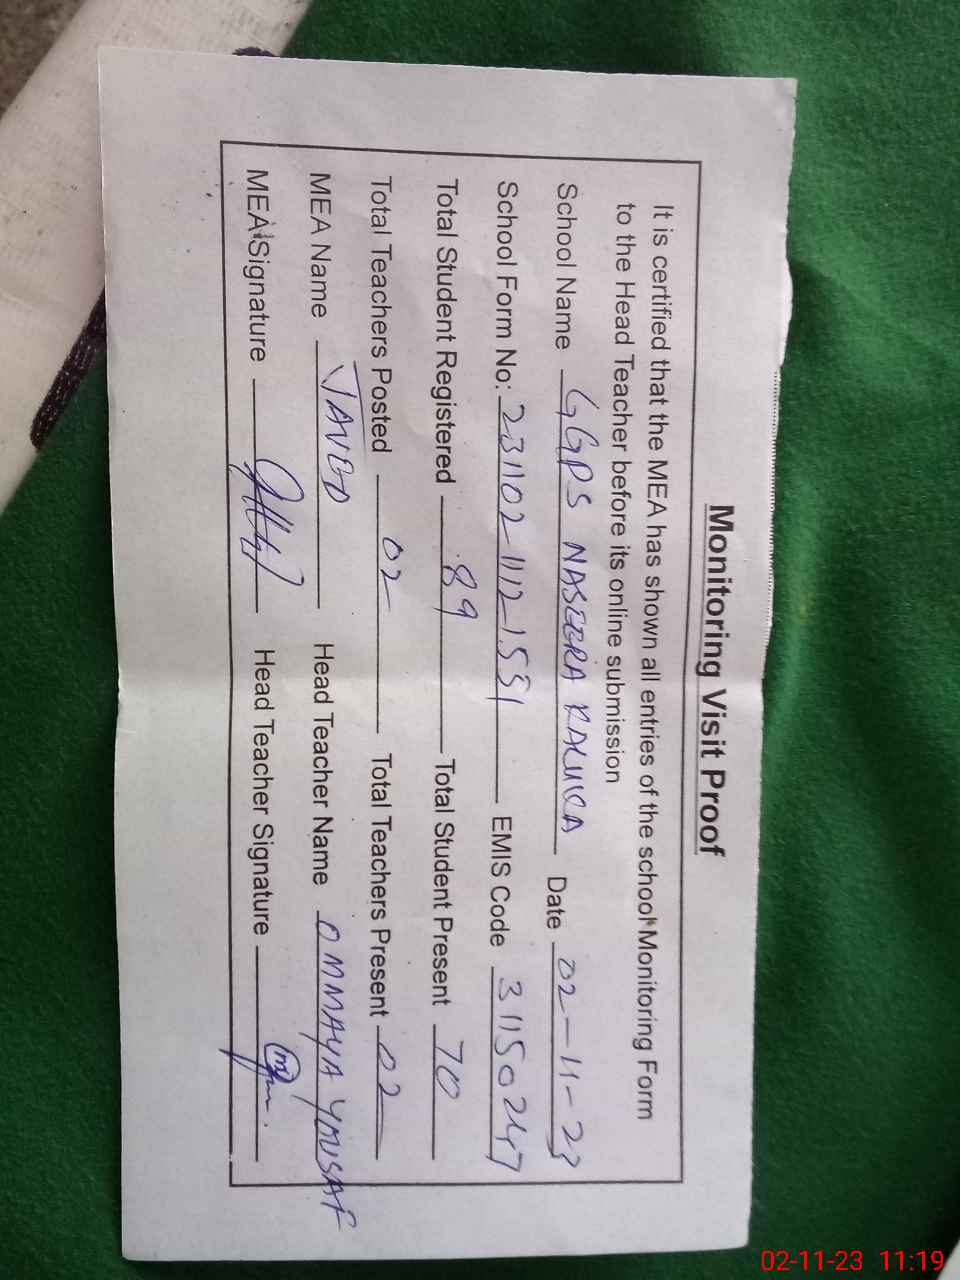 Monitoring Visit Proof
It is certified that the MEA has shown all entries of the school Monitoring Form
to the Head Teacher before its online submission
School Name GGPS NASEERA KALUKA Date 02-11-23
School Form No: 23110211121551 EMIS Code 31150247
Total Student Registered 89 Total Student Present 70
Total Teachers Posted 02 Total Teachers Present 02
MEA Name JAVED Head Teacher Name OMMAYA YOUSAF
MEA Signature Head Teacher Signature
02-11-23 11:19